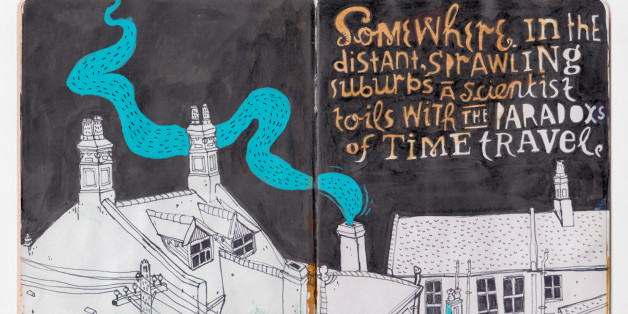 SOMEWHERE IN THE
distant, SPRAWLING
suburbs a scientist
toils WITH THE PARADOXS
of TIME travel.